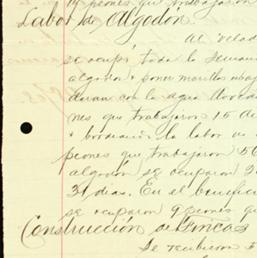 peones que trabajaron
Labor de Algodón.
Al velad
se ocupó toda la semana
algodon
daran con la agua lloved
nes que trabajaron 15 A
bordeando. la labor
peones que trabajaron 56
algodon se ocuparon 2
31 dias. En el benefici
se ocuparon 9 peones qu
Construcción de Fincas
Se recibieron 5